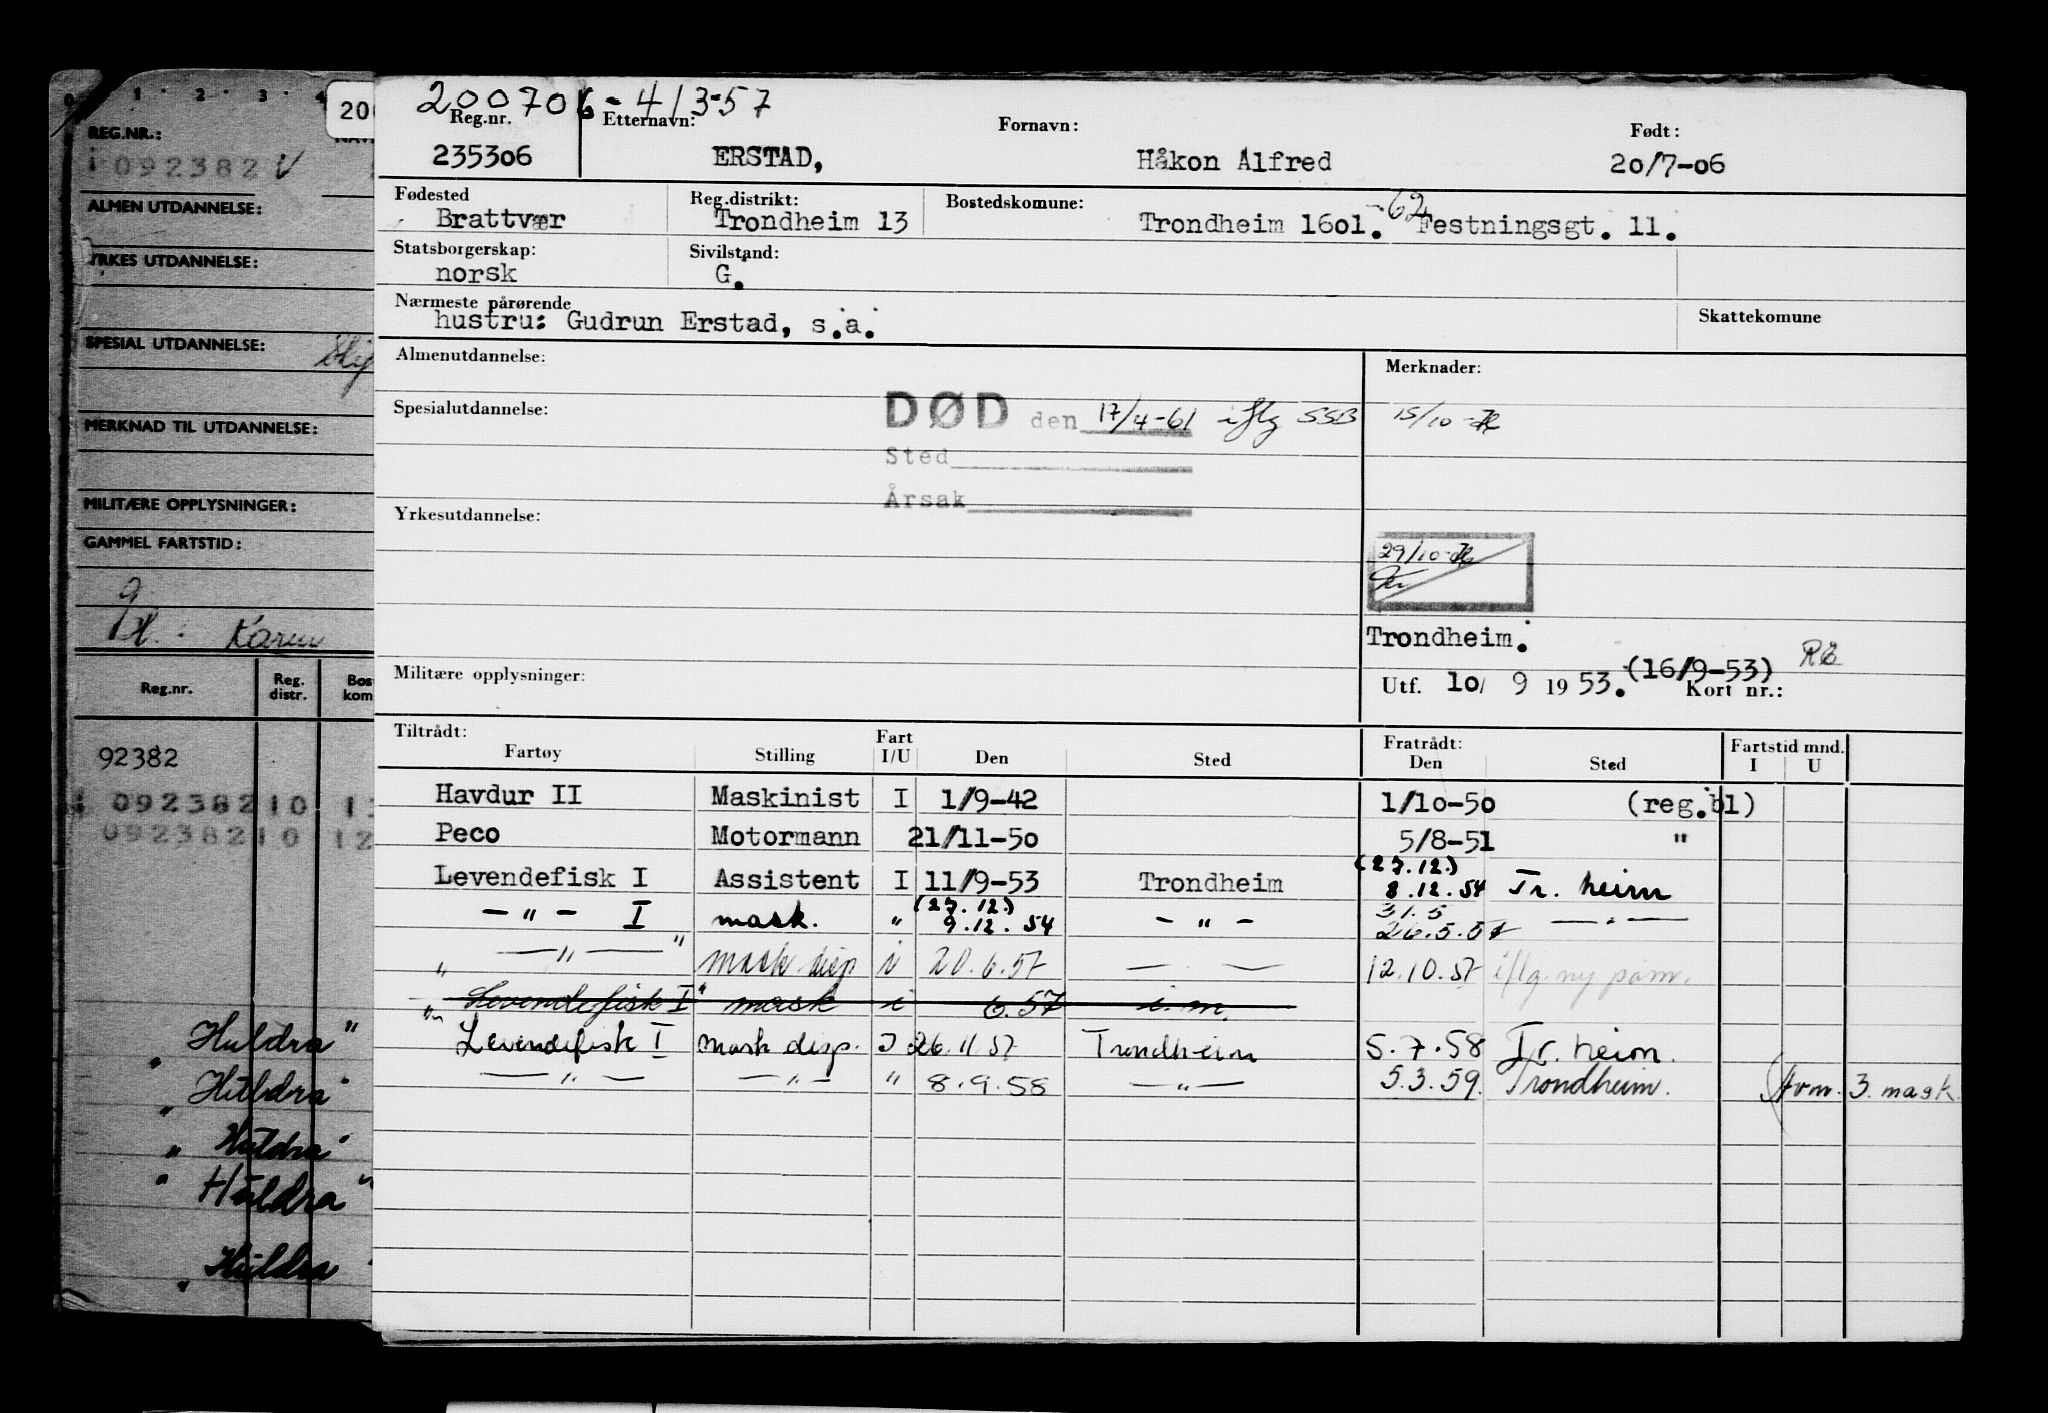 0 1 2 3 4
REG.NR.:
i 092382 V
20
ALMEN UTDANNELSE:
YRKES UTDANNELSE:
SPESIAL UTDANNELSE:
MERKNAD TIL UTDANNELSE:
MILITÆRE OPPLYSNINGER:
GAMMEL FARTSTID:
Karen
Reg.nr. Reg. distr. Bos kom
92382
092382 10 1
092382 10 12
"Huldra"
"Huldra"
"Huldra"
"Huldra"
"Huldra
200706-413-57
Reg.nr. Etternavn: Fornavn: Født:
235306 ERSTAD, Håkon Alfred 20/7-06
Fødested Reg.distrikt: Bostedskomune:
Brattvær Trondheim 13 Trondheim 1601.-62 Festningsgt. 11.
Statsborgerskap: Sivilstand:
norsk G.
Nærmeste pårørende Skattekomune
hustru: Gudrun Erstad, s.a.
Almenutdannelse: Merknader:
Spesialutdannelse: DØD den 17/4-61 iflg SSB 15/10-
Sted
Årsak
Yrkesutdannelse:
29/10-
Trondheim.
Militære opplysninger: Utf. 10/ 9 1953. (16/9-53) Kort nr.:
Tiltrådt: Fratrådt: Fartstid mnd.
Fartøy Stilling Fart I/U Den Sted Den Sted I U
Havdur II Maskinist I 1/9-42 1/10-50 (reg.bl)
Peco Motormann 21/11-50 5/8-51 "
(27.12.)
Levendefisk I Assistent I 11/9-53 Trondheim 8.12.54 Tr. heim
(27.12.) 31.5
-"- I mask. " 9.12.54 -"- 26.5.57 -"-
"-"-" mask disp i 20.6.57 - - 12.10.57 iflg. ny påm.
"Levendefisk I" mask i 6.57 i.m.
Levendefisk I mask disp. I 26.11.57 Trondheim 5.7.58 Tr. heim.
-"- -"- " 8.9.58 -"- 5.3.59. Trondheim. (tvm. 3. mask.